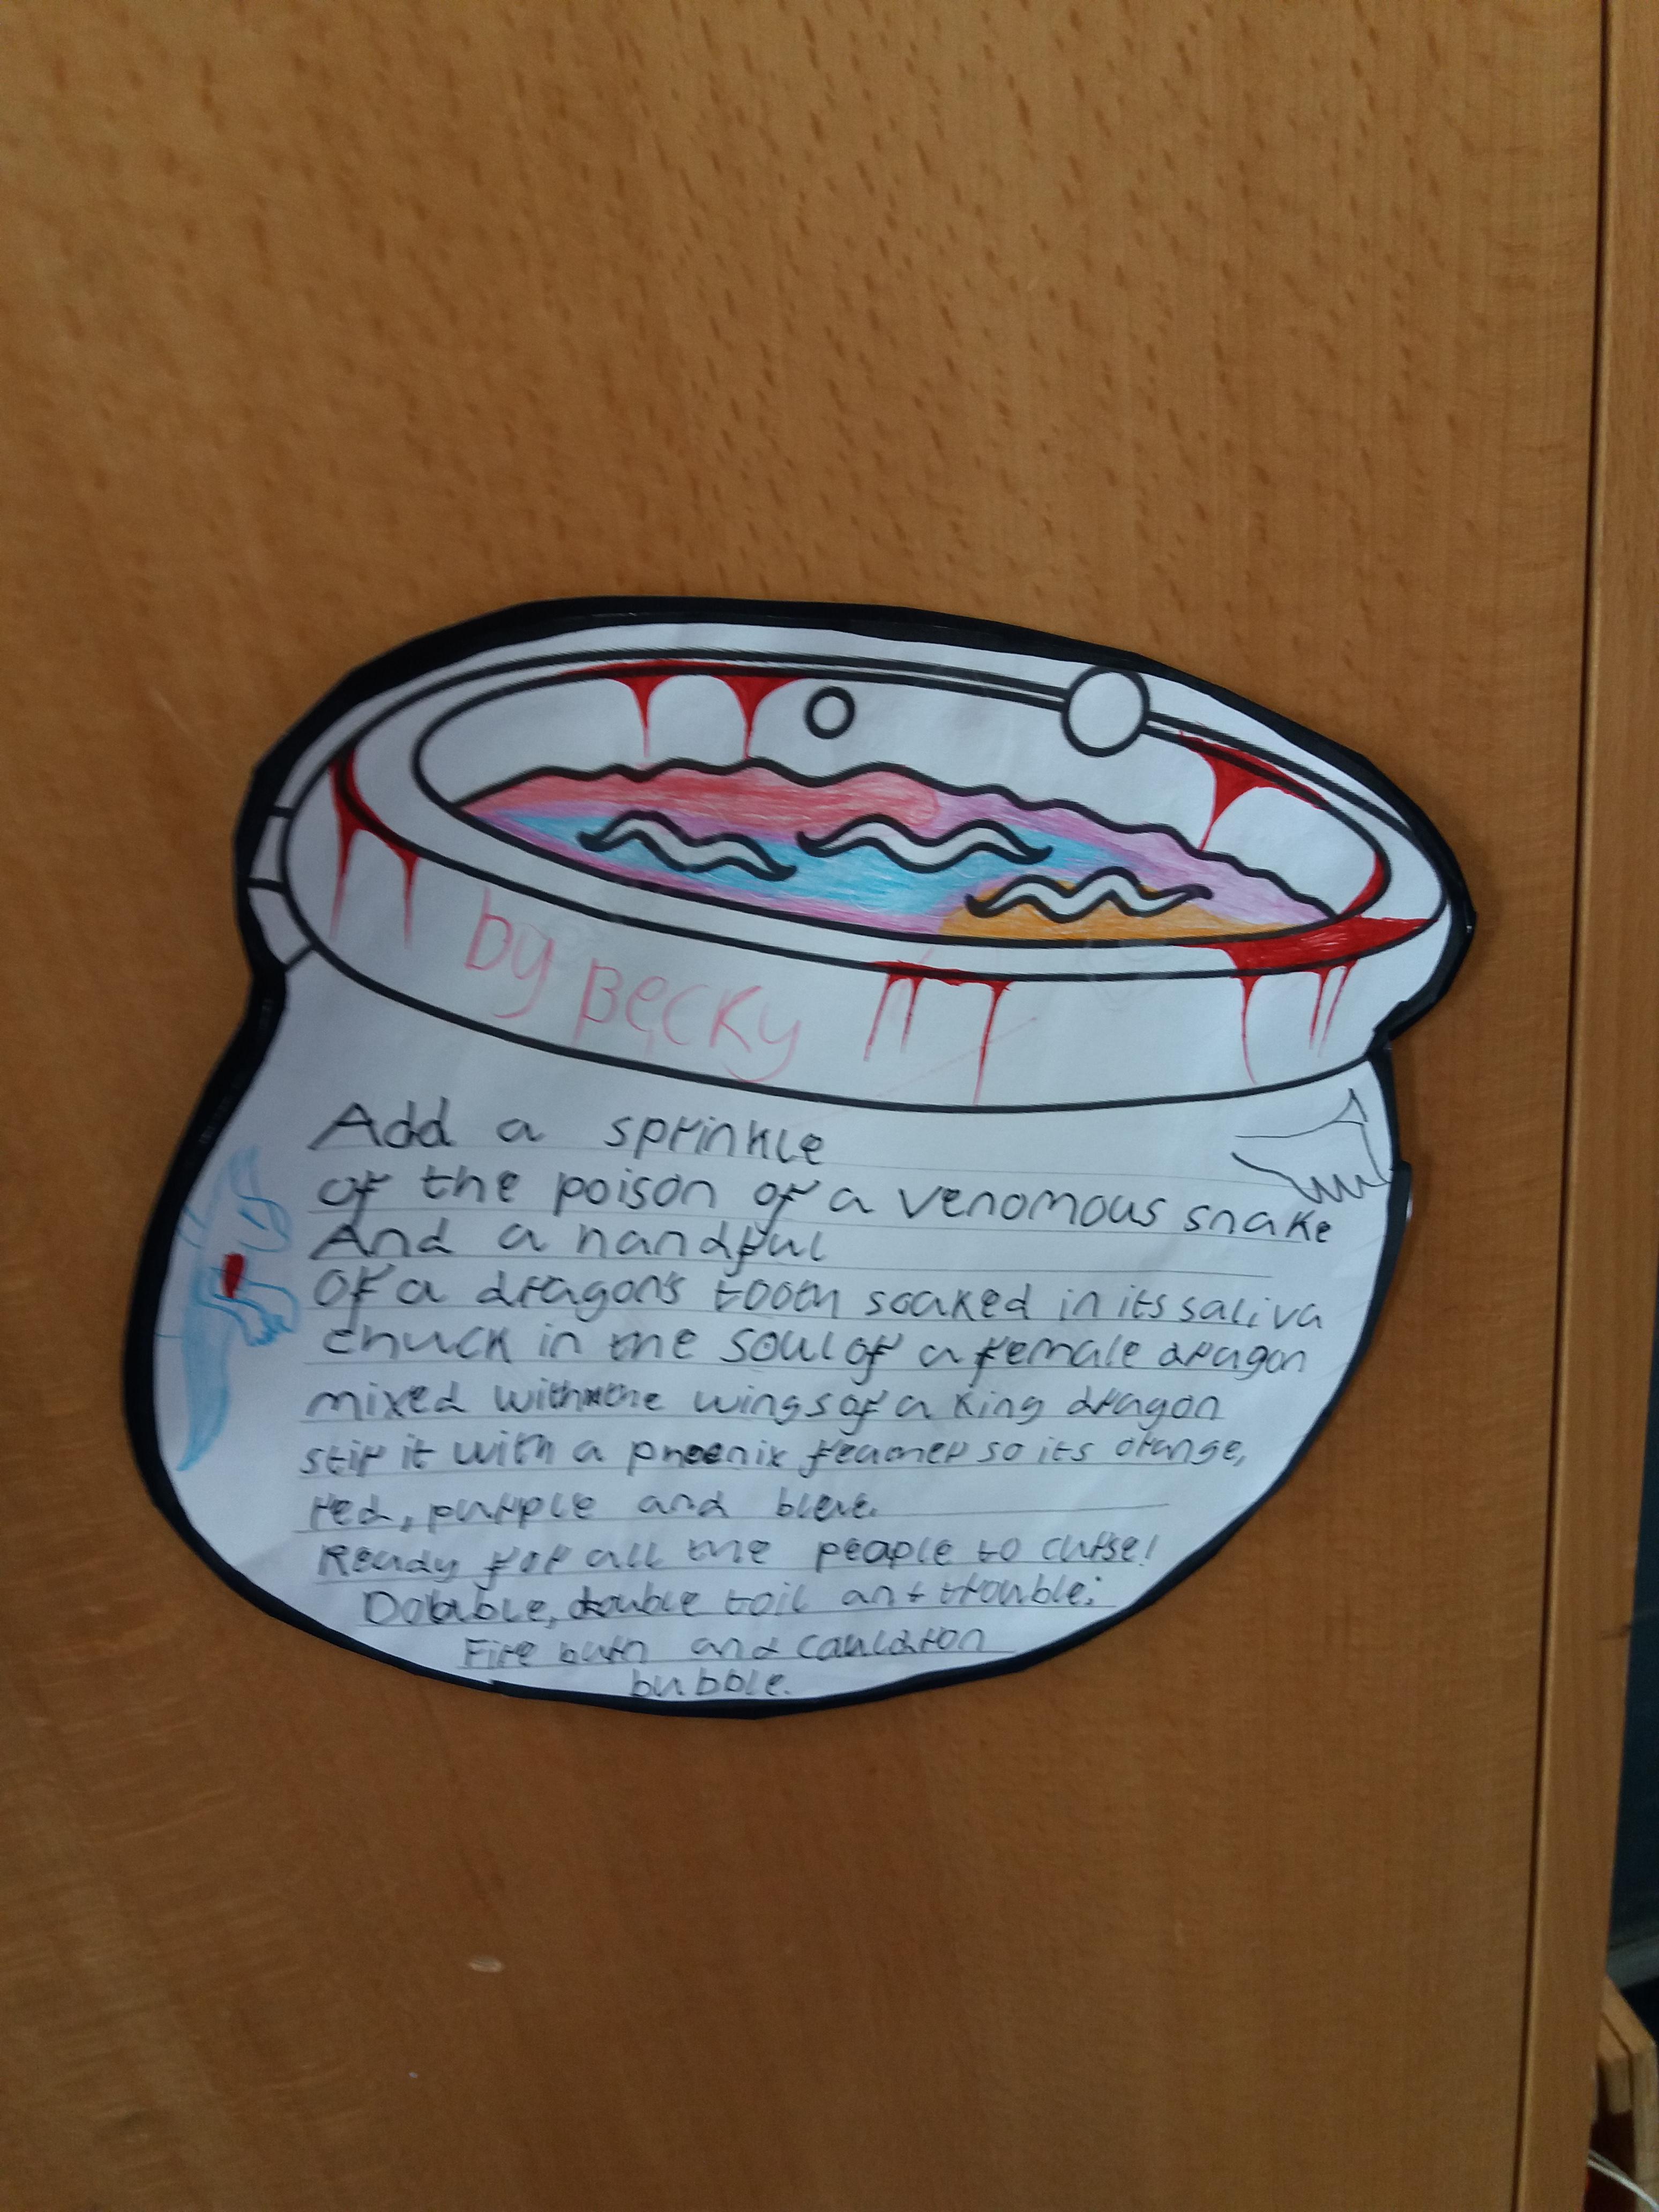 by Becky
Add a sprinkle
of the poison of a venomous snake
And a handful
Of a dragon's tooth soaked in its saliva
chuck in the soul of a female dragon
mixed with the wings of a king dragon
stir it with a phoenix feather so its orange,
red, purple and blue.
Ready for all the people to curse!
Double, double toil ant trouble;
Fire burn and cauldron
bubble.